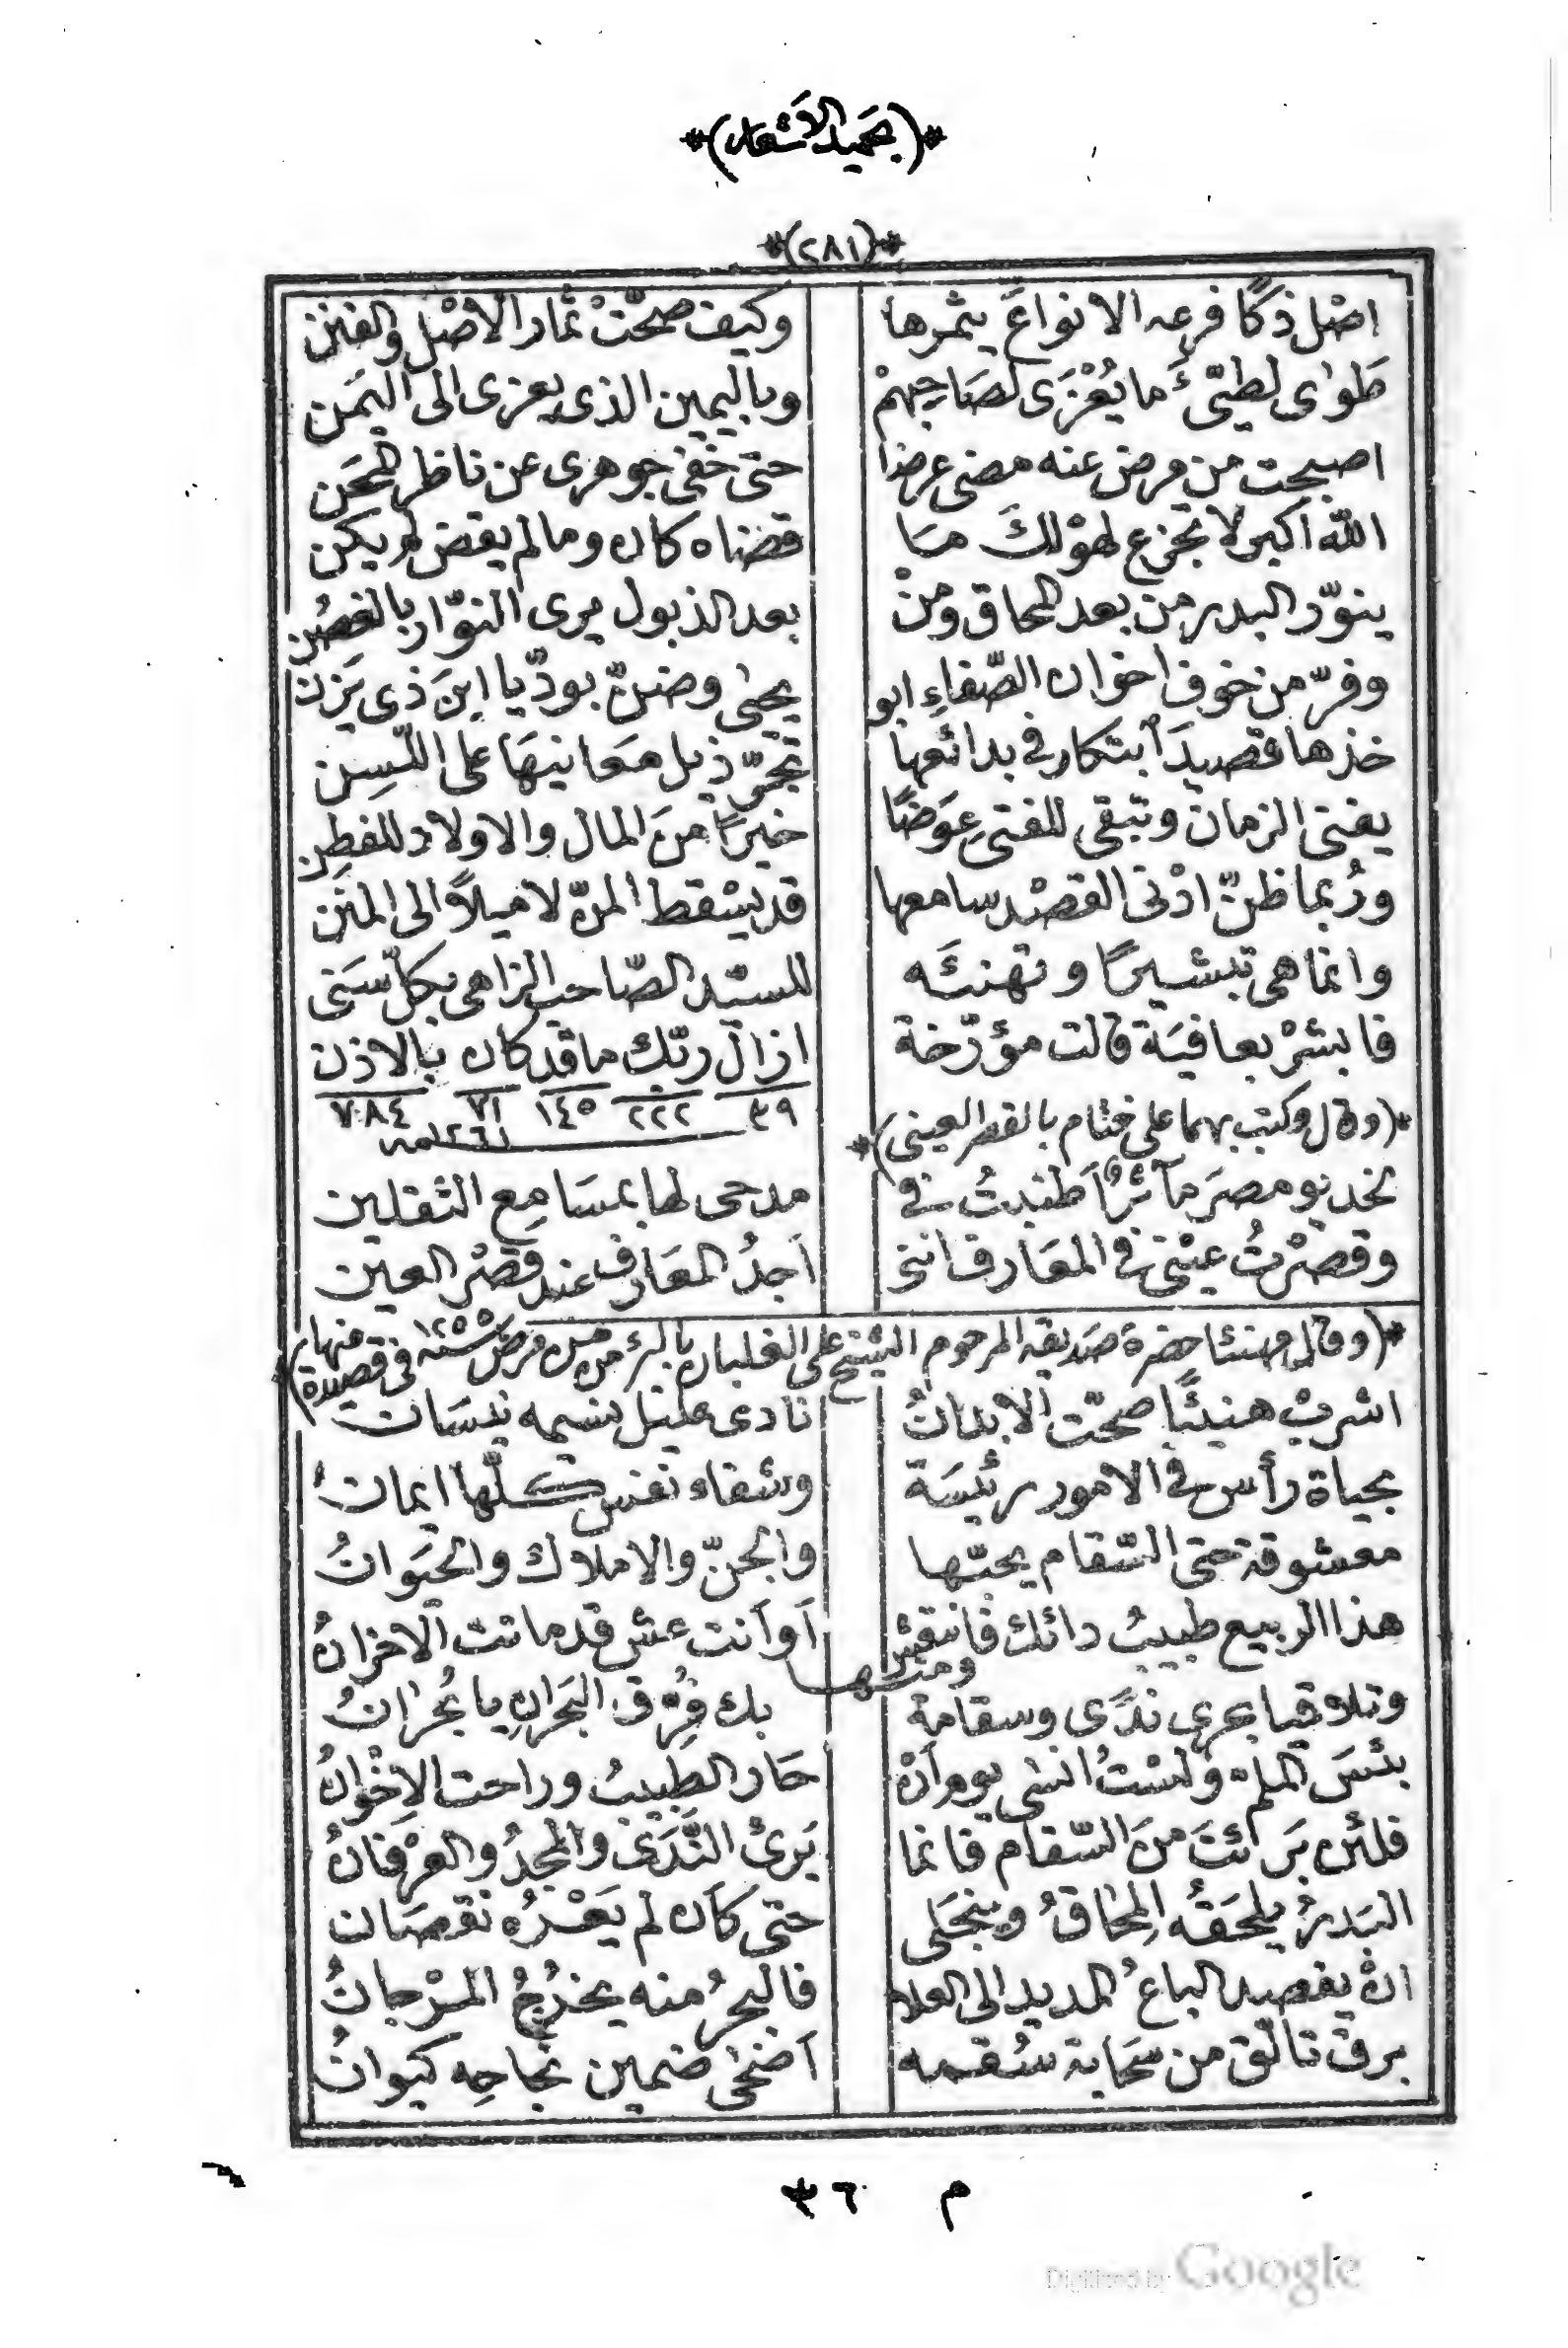 *(بحميد الأشعار)*
*(٢٨١)*
اصْل ذكا فرعه الانواعَ يثمرها وكيف صحّتْ ثمار الأصْل والفنن
طَوٰى لطيّئَ ما يُعْزَى لصَاحِبهمْ وباليمين الذى يعزى الى اليَمن
اصبحت من مرض عنه مضى عرضا حتى خفى جوهرى عن ناظر المحَن
الله اكبر لا تجزع لهوْلكَ مسَا قضاه كان وما لم يقض لم يكن
ينوّر البدر من بعد المحاق ومنْ بعد الذبول يرى النوّار بالغصُن
وفرّ من خوف اخوان الصّفاءِ ابو يحيٰى وضنّ بودّ يا ابنَ ذى يَزن
خذها قصيدَ ابتكار فى بدائعها تجرّ ذيل معَانيهَا على اللّسِن
يفنى الزمان وتبقى للفتى عِوَضًا خيرًا منَ المال والاولاد للفطِن
ورُبما ظنّ ادْنى القصْد سامعها قد يسْقط المرّ لا ميلاً الى المنَن
وانما هى تبشيرًا وتهنئَه للسيّد الصّاحب الزاهى بكلّ سَنى
فابشرْ بعافيَة قالت مؤرّخة ازال ربّك ما قد كان بالاذن
٣٩ ٢٢٢ ١٤٥ ٧١ ٧٨٤
١٢٦١سنه
*(وقال وكتب بهما على ختام بالقصر العينى)*
لخديو مصرَ مآثرٌ اَطنبتُ فى مدحى لها بمسَامِع الثقلين
وقصَرْتُ عيْنى فى المعَارف اننى اَجدُ المعَارف عند قصْر العين
*(وقال مهنئا حضرة صديقه المرحوم الشيخ على الغلبان بالبرء من مرض سنة ١٢٥٥ فى قصيدة منها)*
اشربْ هنيئًا صحّت الابدانُ نادى عليل نسيمه نيسَان
بحياة رأس فى الامور رئيسَة وشفاء نفس كلّها ايمانُ
معشوقة حتى السّقام يحبّها والجنّ والاملاك والحيَوانُ
هذا الربيع طبيبُ دائك فانتقش اَوَاَنت عش قد ماتت الاحزانُ
ومنها
وتلاقيا بحرى ندًى وسقامة بك فُرّق البَحرانِ يا بُحْرانُ
بئسَ الملم ولسْتُ انسٰى يوم اَنْ حَار الطبيبُ وراحت الاِخْوانُ
فلئن بَرَئتَ منَ السّقام فانما بَرئ النَّدَى والمجدُ والعرْفانُ
البَدرُ يلحَقُه المِحَاقُ وينجَلى حتى كأن لم يَعْرُه نقصَان
انْ يقصد الباعُ المديد الى العلا فالبحرُ منه يخرُجُ المرْجانُ
برق تالّق من سحَابة سُقمه اَضحٰى ضمين نجاحِه كيوانُ
م ٣٦
Digitized by Google